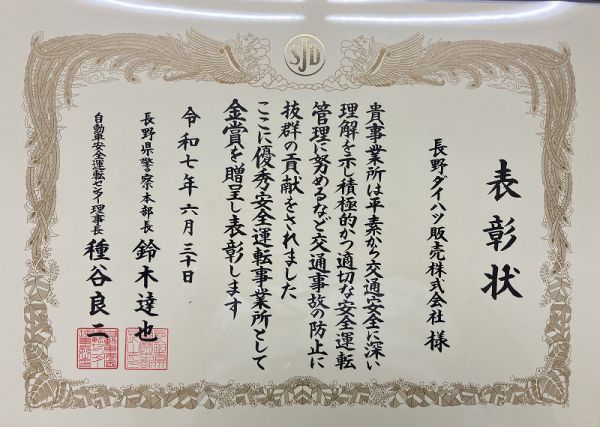 SJD
表彰状
長野ダイハツ販売株式会社 様
貴事業所は平素から交通安全に深い
理解を示し積極的かつ適切な安全運転
管理に努めるなど交通事故の防止に
抜群の貢献をされました
ここに優秀安全運転事業所として
金賞を贈呈し表彰します
令和七年六月三十日
長野県警察本部長 鈴木達也
自動車安全運転センター理事長 種谷良二